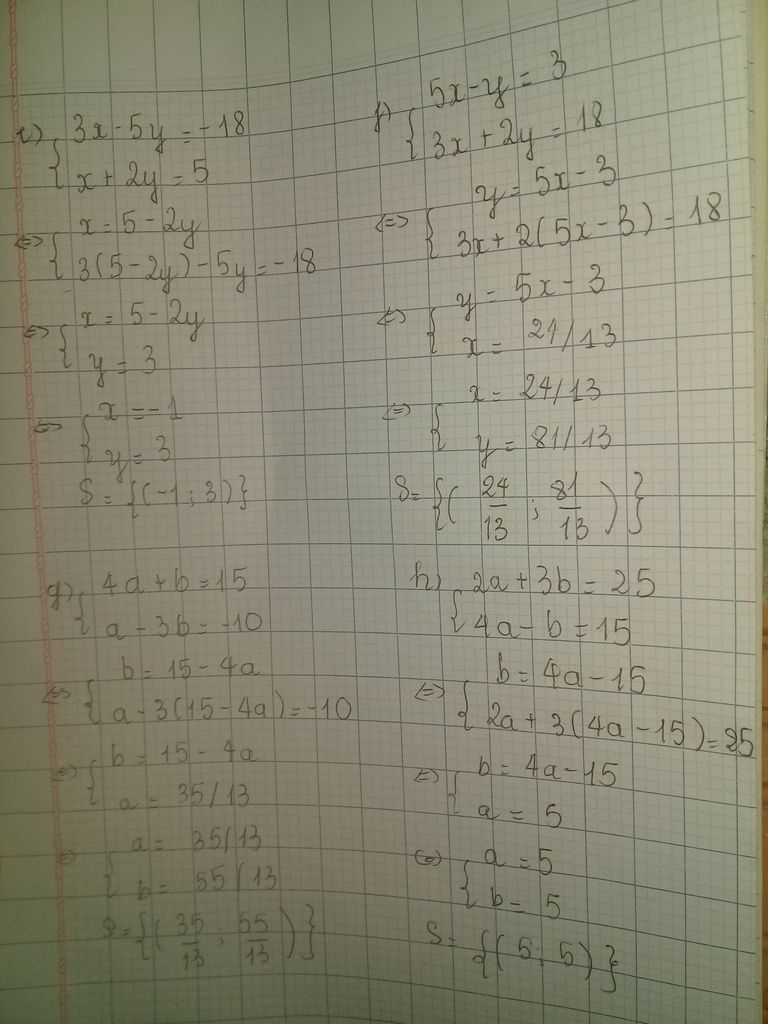 e) { 3x - 5y = -18
x + 2y = 5
<=> { x = 5 - 2y
3(5 - 2y) - 5y = -18
<=> { x = 5 - 2y
y = 3
<=> { x = -1
y = 3
S = {(-1 ; 3)}
f) { 5x - y = 3
3x + 2y = 18
<=> { y = 5x - 3
3x + 2(5x - 3) = 18
<=> { y = 5x - 3
x = 24/13
<=> { x = 24/13
y = 81/13
S = {( 24/13 ; 81/13 )}
g) { 4a + b = 15
a - 3b = -10
<=> { b = 15 - 4a
a - 3(15 - 4a) = -10
<=> { b = 15 - 4a
a = 35/13
<=> { a = 35/13
b = 55/13
S = {( 35/13 ; 55/13 )}
h) { 2a + 3b = 25
4a - b = 15
<=> { b = 4a - 15
2a + 3(4a - 15) = 25
<=> { b = 4a - 15
a = 5
<=> { a = 5
b = 5
S = {(5 ; 5)}